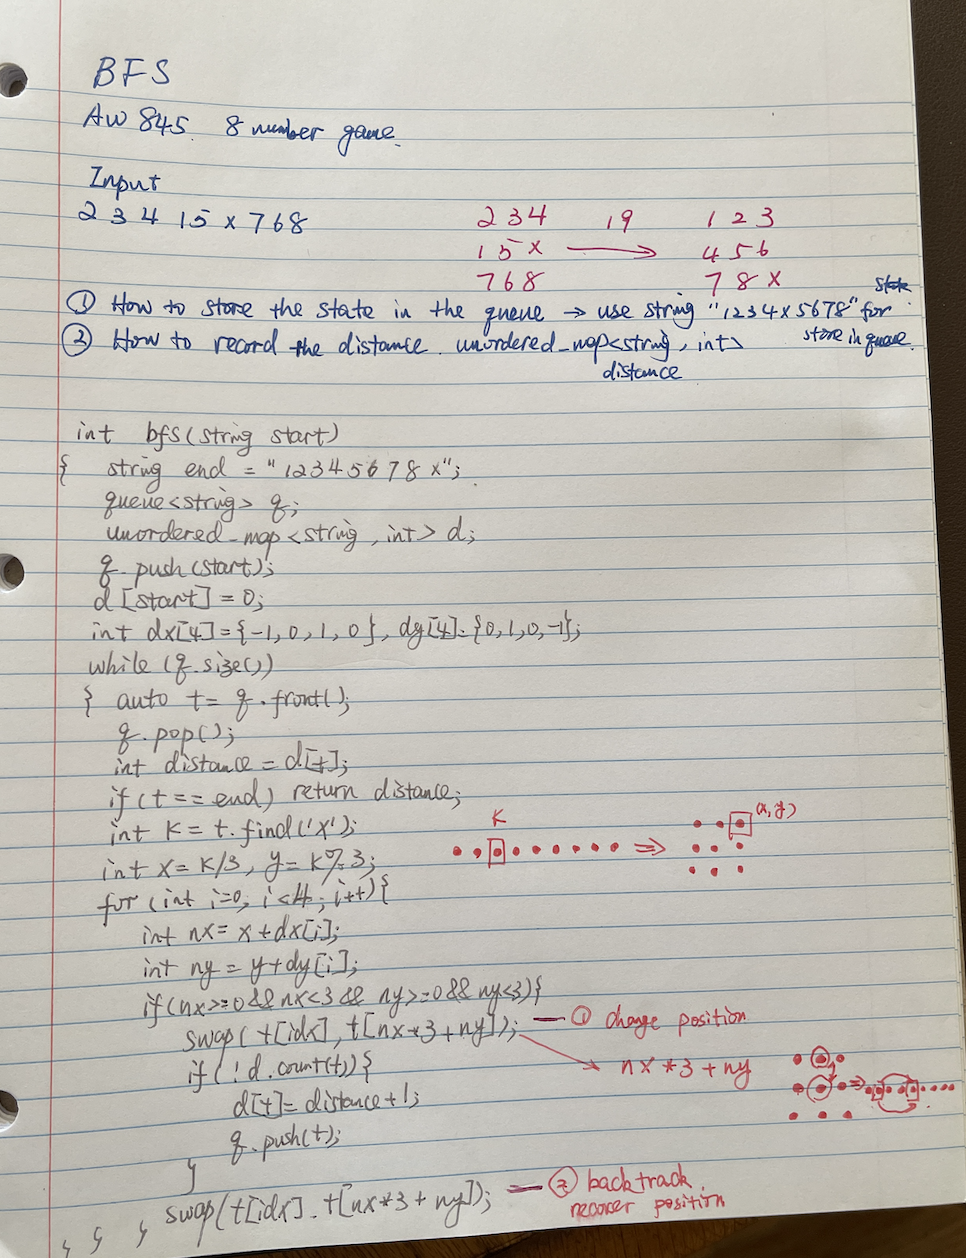 BFS
AW 845. 8 number game.
Input
2 3 4 1 5 x 7 6 8
2 3 4 19 1 2 3
1 5 x → 4 5 6
7 6 8 7 8 x
① How to store the state in the queue → use string "1234x5678" for
store in queue.
② How to record the distance. unordered_map<string, int>
distance
int bfs(string start)
{ string end = "12345678x";
queue<string> q;
unordered_map<string, int> d;
q.push(start);
d[start] = 0;
int dx[4]={-1, 0, 1, 0}, dy[4]={0,1,0,-1};
while (q.size())
{ auto t = q.front();
q.pop();
int distance = d[t];
if (t == end) return distance;
int K = t.find('x');
int x = K/3, y = K%3;
for (int i=0; i<4; i++){
int nx = x + dx[i];
int ny = y + dy[i];
if(nx>=0 && nx<3 && ny>=0 && ny<3){
swap( t[idx], t[nx*3+ny]); — ① change position
if (!d.count(t)){
d[t]=distance+1;
q.push(t);
}
swap(t[idx], t[nx*3+ny]); — ② backtrack.
recover position
} } }
K
(x,y)
nx*3+ny